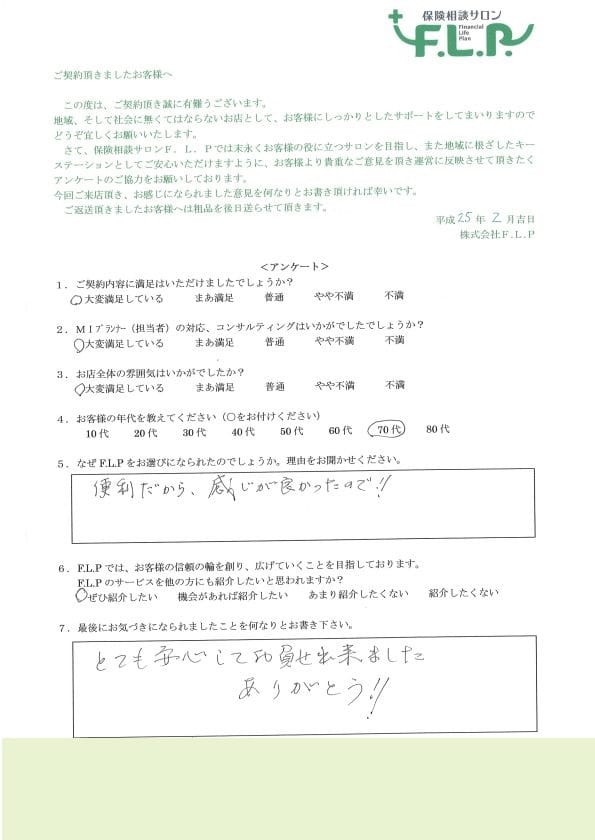 保険相談サロン
Financial
Life
Plan
F.L.P.
ご契約頂きましたお客様へ
この度は、ご契約頂き誠に有難うございます。
地域、そして社会に無くてはならないお店として、お客様にしっかりとしたサポートをしてまいりますので
どうぞ宜しくお願いいたします。
さて、保険相談サロンＦ．Ｌ．Ｐでは末永くお客様の役に立つサロンを目指し、また地域に根ざしたキー
ステーションとしてご安心いただけますように、お客様より貴重なご意見を頂き運営に反映させて頂きたく
アンケートのご協力をお願いしております。
今回ご来店頂き、お感じになられました意見を何なりとお書き頂ければ幸いです。
ご返送頂きましたお客様へは粗品を後日送らせて頂きます。
平成 25 年 2 月吉日
株式会社Ｆ.Ｌ.Ｐ
＜アンケート＞
１．ご契約内容に満足はいただけましたでしょうか？
○大変満足している まあ満足 普通 やや不満 不満
２．ＭＩプランナー（担当者）の対応、コンサルティングはいかがでしたでしょうか？
○大変満足している まあ満足 普通 やや不満 不満
３．お店全体の雰囲気はいかがでしたか？
○大変満足している まあ満足 普通 やや不満 不満
４．お客様の年代を教えてください（〇をお付けください）
10代 20代 30代 40代 50代 60代 70代 80代
５．なぜF.L.Pをお選びになられたのでしょうか。理由をお聞かせください。
便利だから、感じが良かったので!!
６．F.L.Pでは、お客様の信頼の輪を創り、広げていくことを目指しております。
F.L.Pのサービスを他の方にも紹介したいと思われますか？
○ぜひ紹介したい 機会があれば紹介したい あまり紹介したくない 紹介したくない
７．最後にお気づきになられましたことを何なりとお書き下さい。
とても安心してお員せ出来ました
ありがとう!!